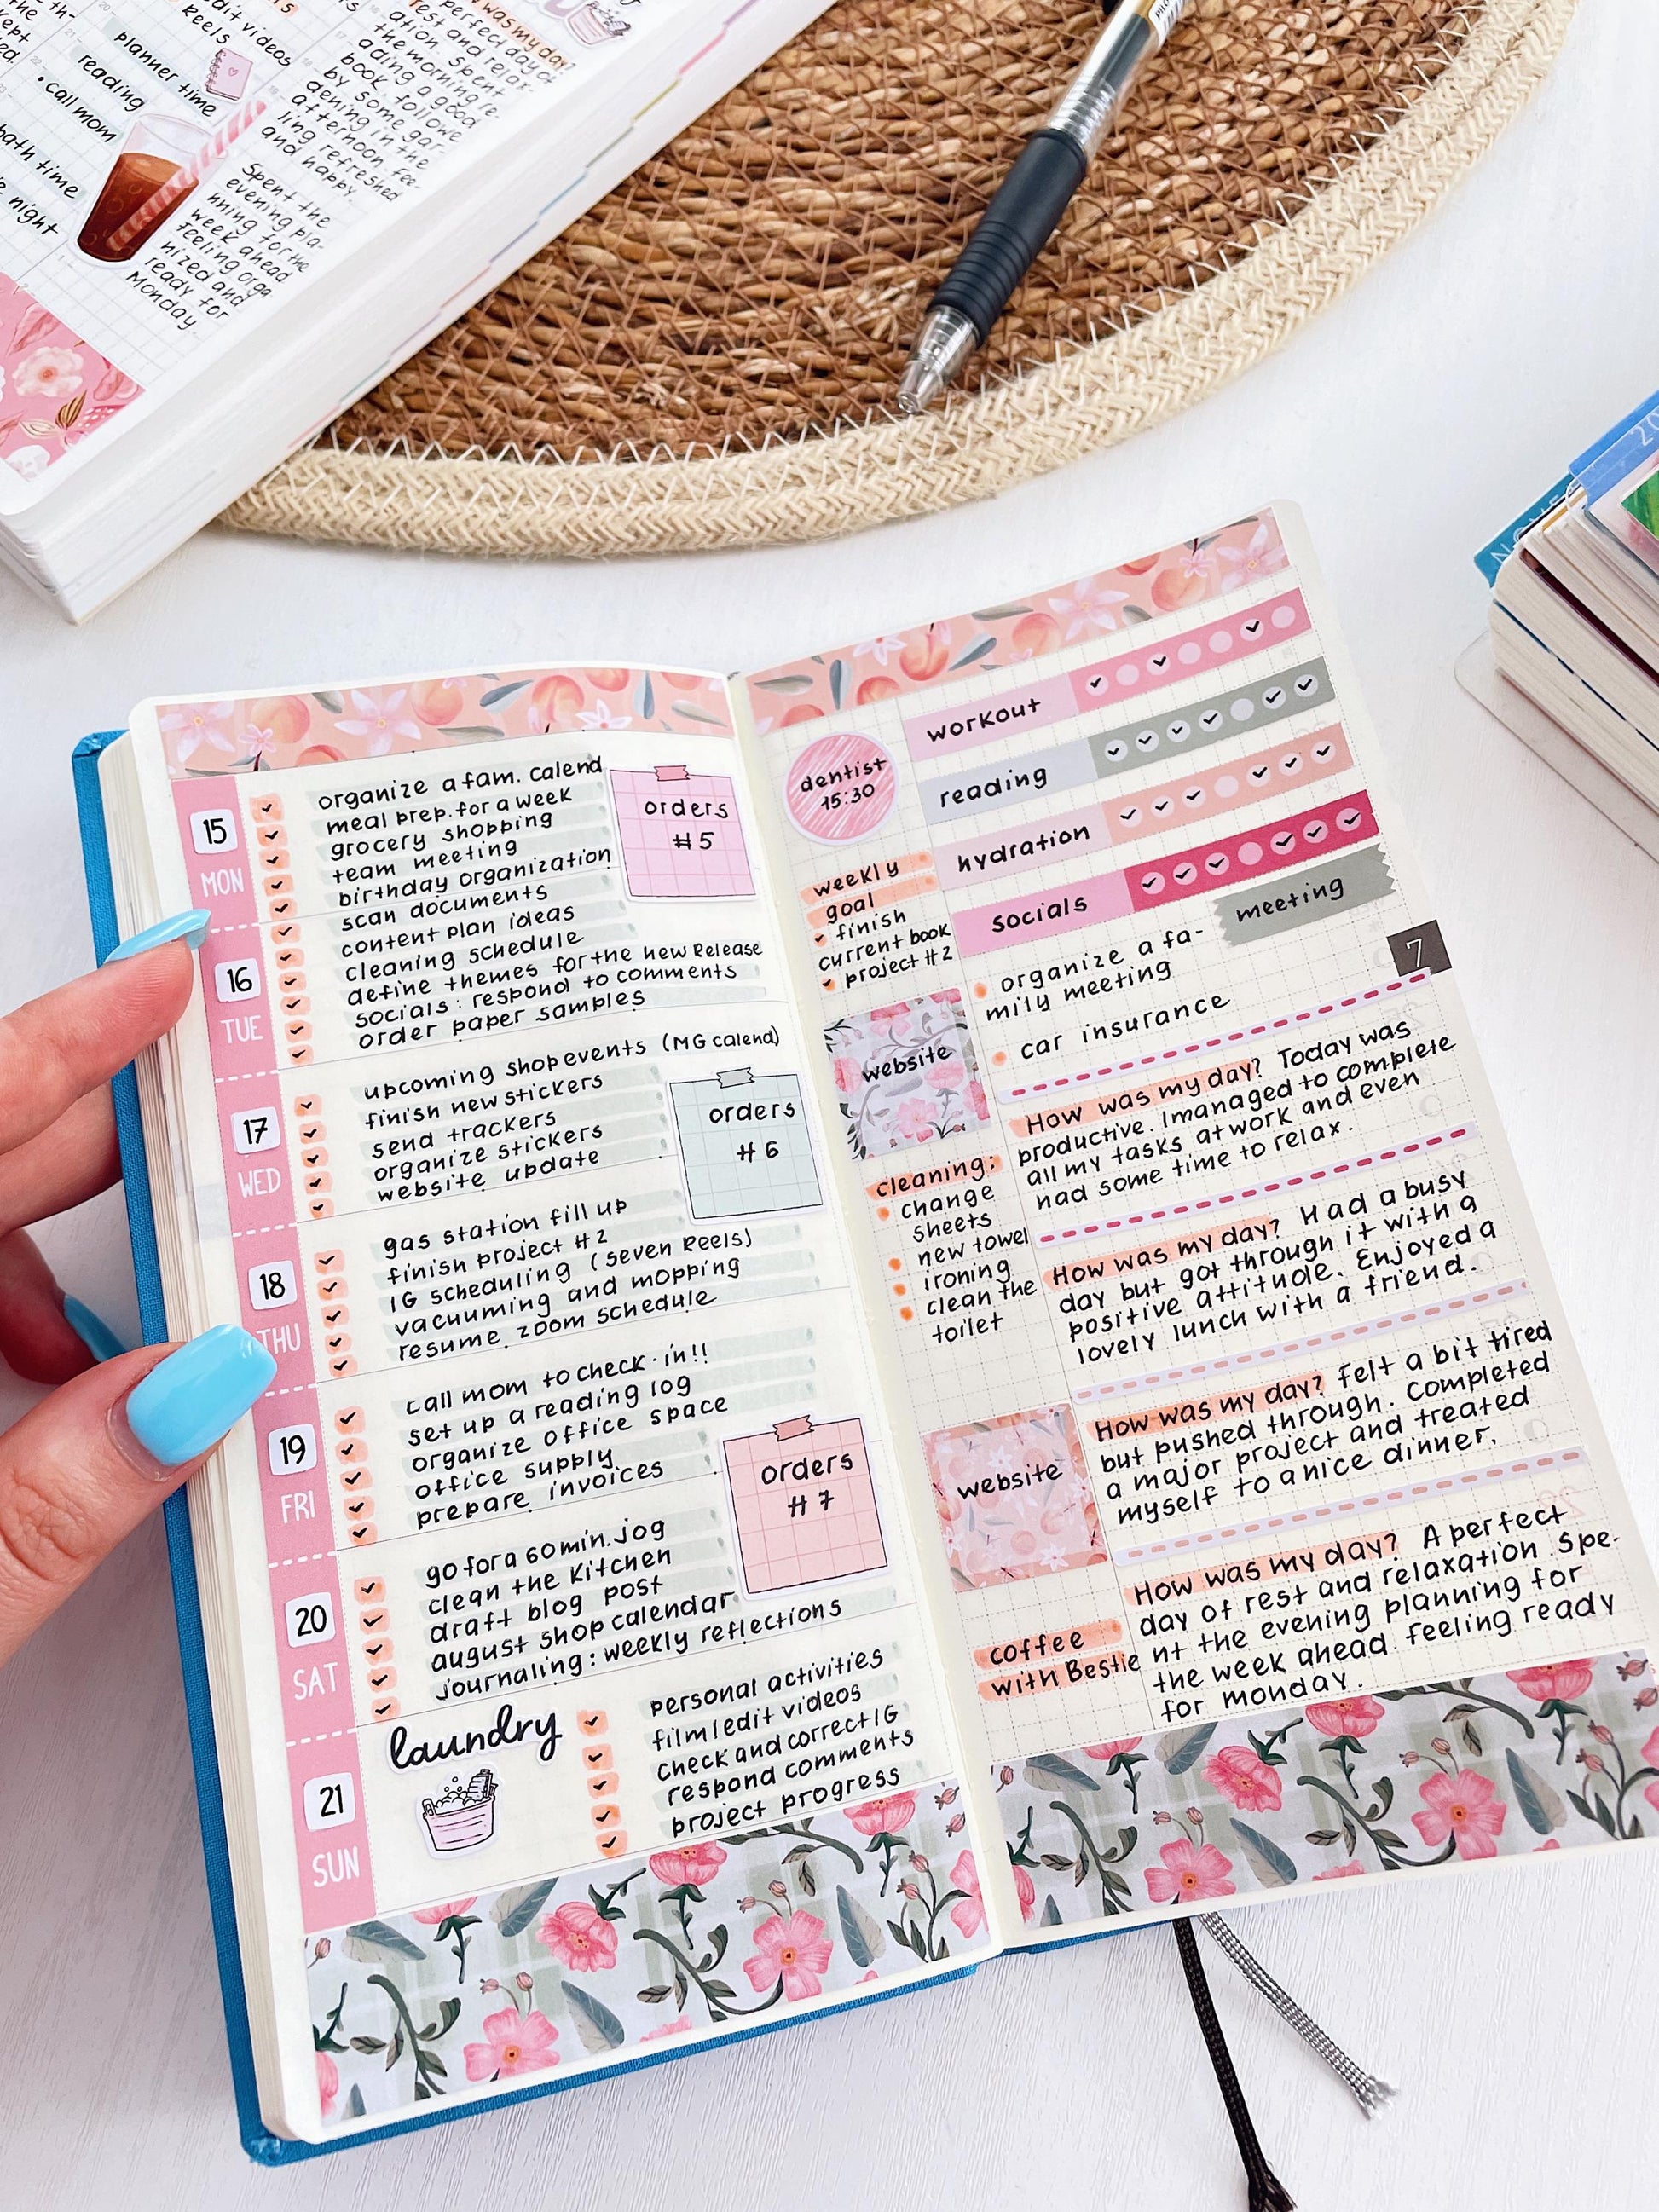 edit videos
Reels
planner time
reading
• call mom
bath time
night
was my day?
perfect day of
rest and relax-
ation. Spent
the morning re-
ading a good
book, followe
by some gar-
dening in the
afternoon fee-
ling refreshed
and happy.
Spent the
evening pla-
nning for the
week ahead
feeling orga
nized and
ready for
Monday.
15
MON
organize a fam. calend
meal prep. for a week
grocery shopping
team meeting
birthday organization
orders
#5
16
TUE
scan documents
content plan ideas
cleaning schedule
define themes for the new Release
socials: respond to comments
order paper samples
17
WED
upcoming shop events (MG calend)
finish new stickers
send trackers
organize stickers
website update
orders
#6
18
THU
gas station fill up
finish project #2
IG scheduling (seven Reels)
vacuuming and mopping
resume zoom schedule
19
FRI
call mom to check-in!!
set up a reading log
organize office space
office supply
prepare invoices
orders
#7
20
SAT
go for a 60 min. jog
clean the kitchen
draft blog post
august shop calendar
journaling: weekly reflections
21
SUN
laundry
personal activities
film/edit videos
check and correct IG
respond comments
project progress
dentist
15:30
workout
reading
hydration
socials
meeting
7
weekly
goal
finish
current book
project #2
• organize a fa-
mily meeting
• car insurance
website
How was my day? Today was
productive. I managed to complete
all my tasks at work and even
had some time to relax.
cleaning:
• change
sheets
• new towel
• ironing
• clean the
toilet
How was my day? Had a busy
day but got through it with a
positive attitude. Enjoyed a
lovely lunch with a friend.
How was my day? Felt a bit tired
but pushed through. Completed
a major project and treated
myself to a nice dinner.
website
How was my day? A perfect
day of rest and relaxation. Spe-
nt the evening planning for
the week ahead. feeling ready
for monday.
coffee
with Bestie